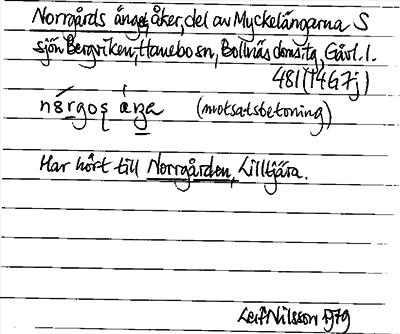 Norrgårds änge, åker, del av Myckelängarna S
sjön Bergviken, Hanebo sn, Bollnäs domsaga, Gävl. l.
481 (14G7j)
(motsatsbetoning)
Har hört till Norrgården, Lilltjära.
Leif Nilsson 1979